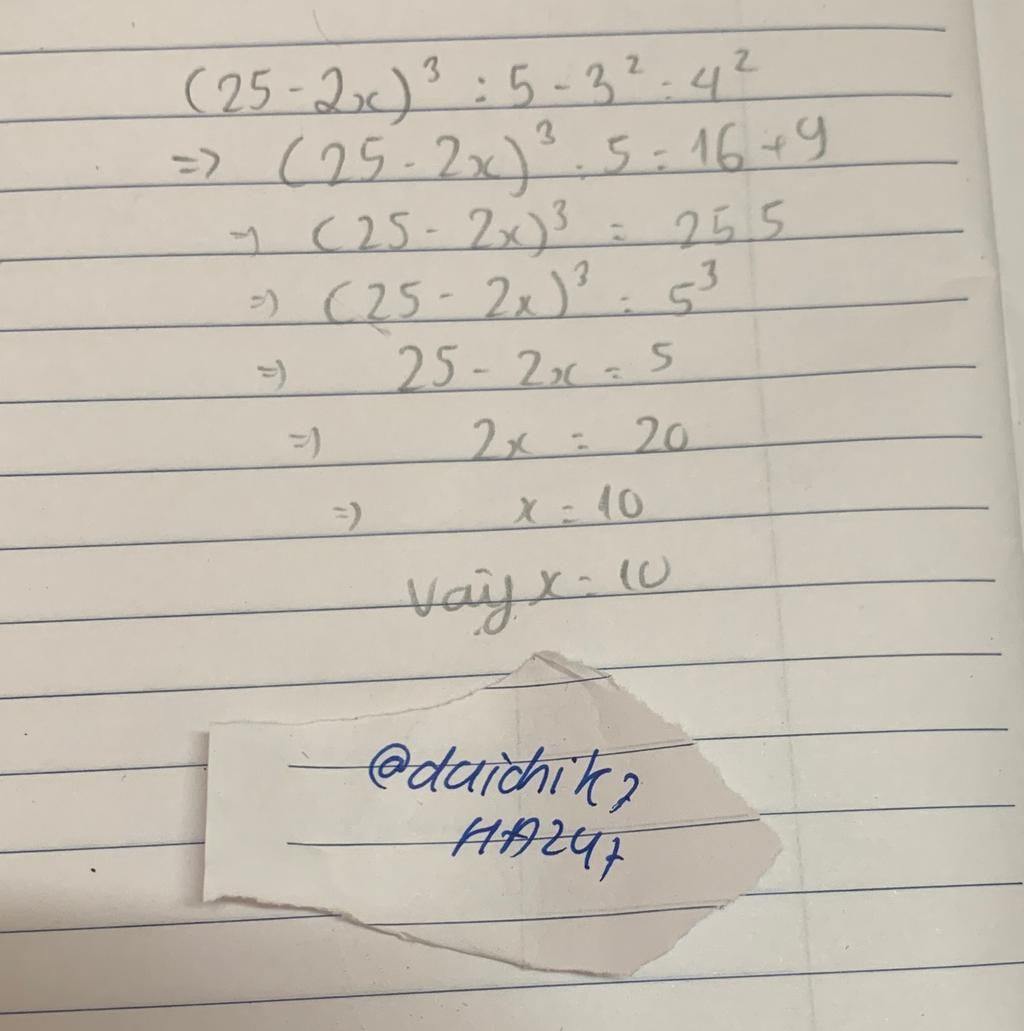 (25 - 2x)³ : 5 - 3² = 4²
=> (25 - 2x)³ : 5 = 16 + 9
=> (25 - 2x)³ = 25.5
=> (25 - 2x)³ = 5³
=> 25 - 2x = 5
=> 2x = 20
=> x = 10
Vậy x = 10
@daichik7
HA247